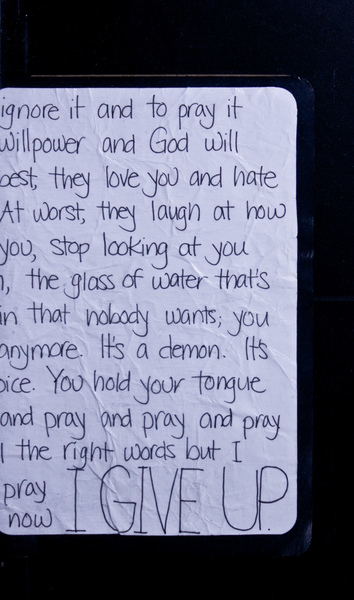 ignore it and to pray it
willpower and God will
best, they love you and hate
At worst, they laugh at how
you, stop looking at you
the glass of water that's
in that nobody wants; you
anymore. It's a demon. It's
You hold your tongue
and pray and pray and pray
the right words but I
pray
now I GIVE UP.